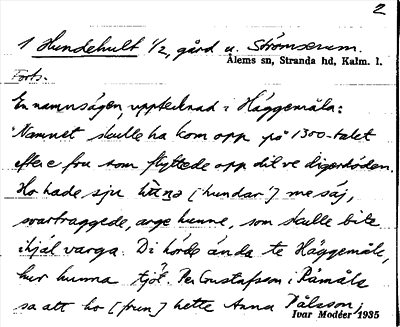 2
1 Hundehult 1/2, gård u. Strömserum.
Ålems sn, Stranda hd, Kalm. l.
Forts.
En namnsägen, upptecknad i Häggemåla:
"Namnet skulle ha kom opp på 1300-talet
efter e fru som flyttede opp dit ve digerdöden.
Ho hade sju [hundar] me säj,
svartraggede, arge hunne, som skulle bite
ihjäl varga. Di hörde ända te Häggemåla,
hur hunna tjöt. Per Gustafsson i Råmåla
sa att ho [frun] hette Anna Pålsson,
Ivar Modéer 1935